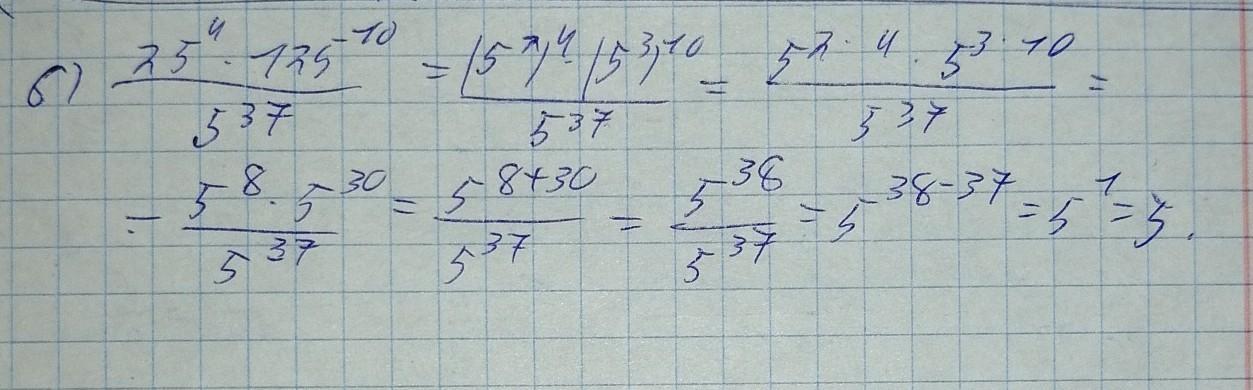 б) (25⁴ · 125¹⁰)/5³⁷ = ((5²)⁴ · (5³)¹⁰)/5³⁷ = (5^(2·4) · 5^(3·10))/5³⁷ =
= (5⁸ · 5³⁰)/5³⁷ = 5^(8+30)/5³⁷ = 5³⁸/5³⁷ = 5^(38-37) = 5¹ = 5.